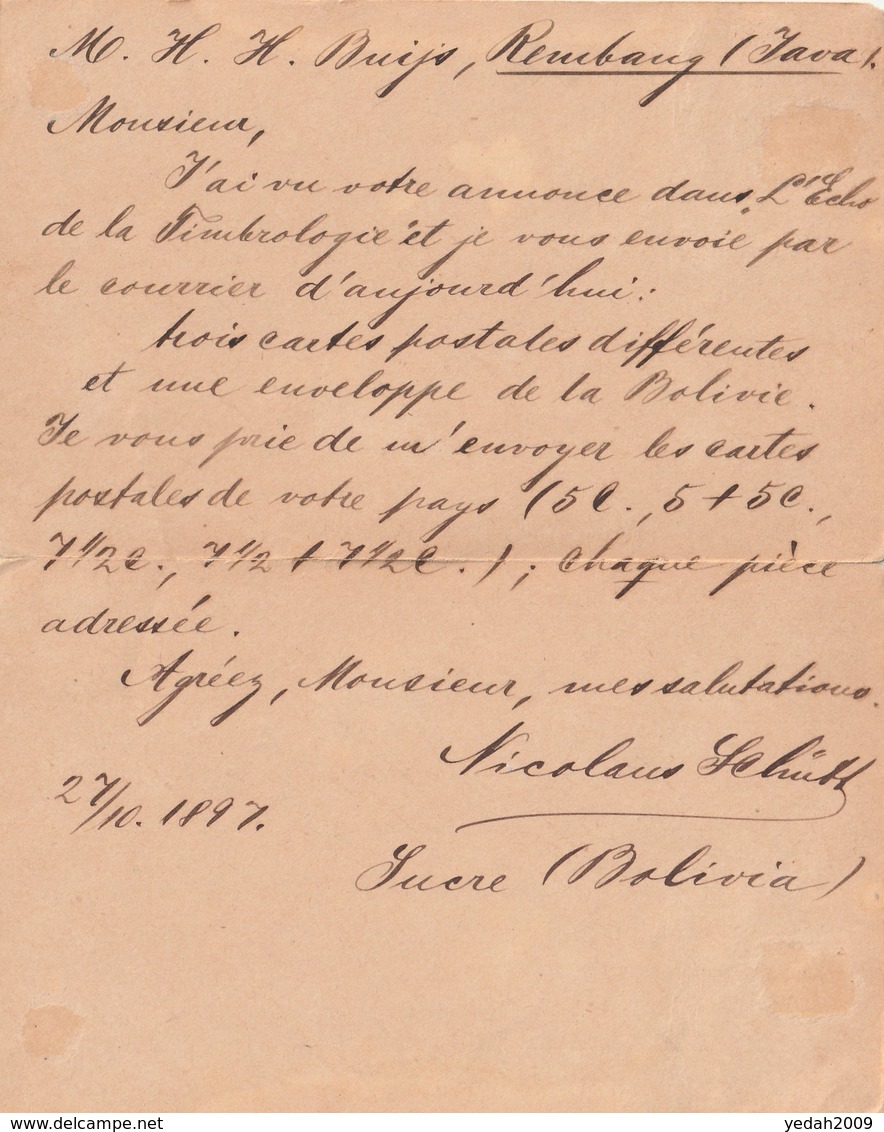 M. H. H. Buijs, Rembang (Java).
Monsieur,
J'ai vu votre annonce dans „L'Echo
de la Timbrologie" et je vous envoie par
le courrier d'aujourd'hui:
trois cartes postales différentes
et une enveloppe de la Bolivie.
Je vous prie de m'envoyer les cartes
postales de votre pays (5C., 5 + 5C.,
7 1/2 c., 7 1/2 + 7 1/2 C.); chaque pièce
adressée.
Agréez, Monsieur, mes salutations.
Nicolaus Schütt
27/10. 1897.
Sucre (Bolivia)
Delcampe.net
yedah2009